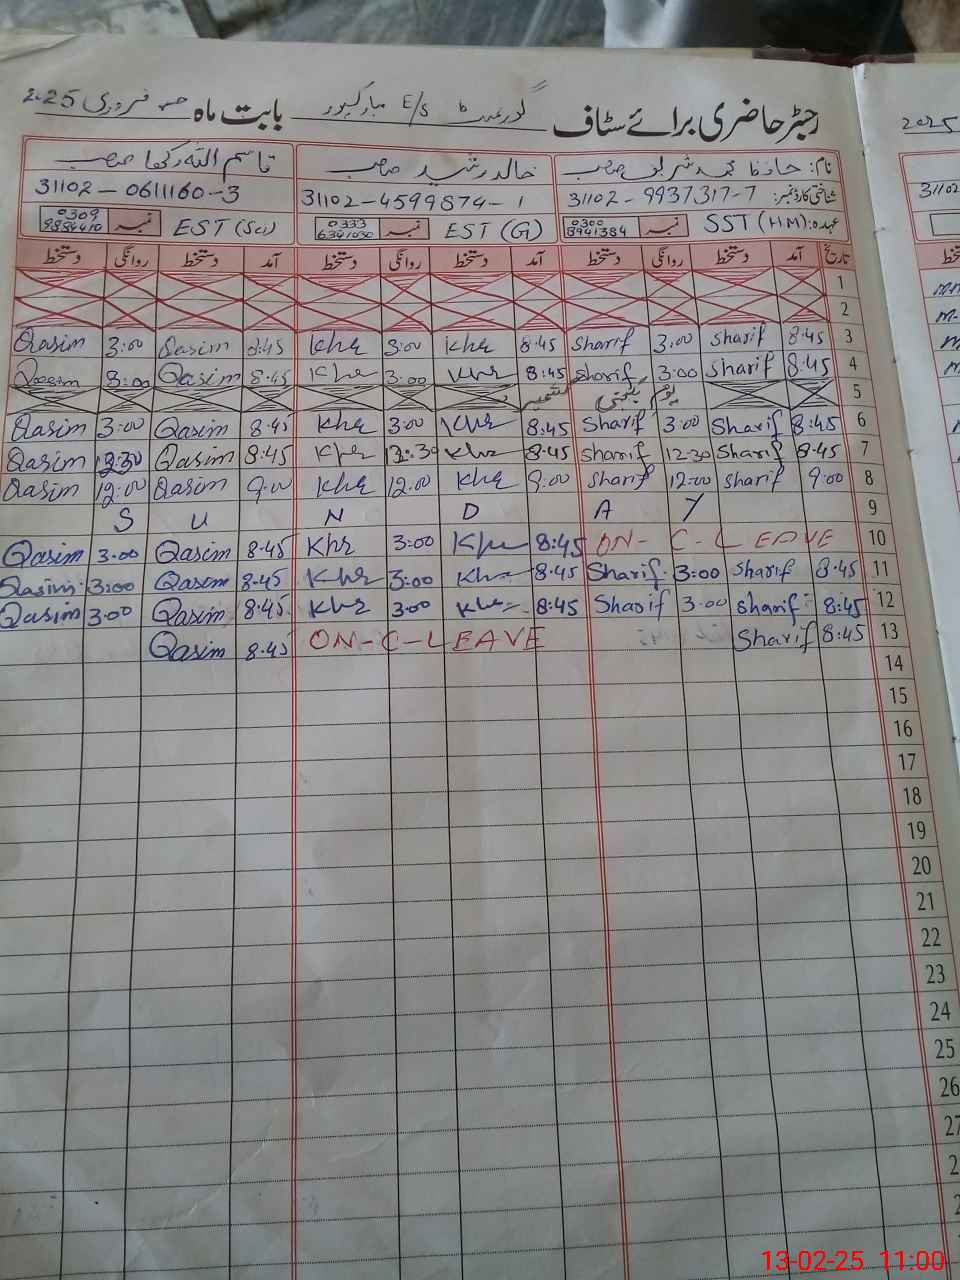 رجسٹر حاضری برائے سٹاف گورنمنٹ E/S مبارکپور بابت ماہ فروری 2025
نام: حافظ محمد شریف صاحب خالد رشید صاحب قاسم اللہ رکھا صاحب
شناختی کارڈ نمبر: 31102-9937317-7 31102-4599874-1 31102-0611160-3
عہدہ: SST (HM) نمبر 0300 EST (G) نمبر 0333 6341030 EST (Sci) نمبر 0309
تاریخ آمد دستخط روانگی دستخط آمد دستخط روانگی دستخط آمد دستخط روانگی دستخط
1
2
3 8:45 Sharif 3:00 Sharif 8:45 Khr 3:00 Khr 8:45 Qasim 3:00 Qasim
4 8:45 Sharif 3:00 Sharif 8:45 Khr 3:00 Khr 8:45 Qasim 3:00 Qasim
5 یوم یکجہتی کشمیر
6 8:45 Sharif 3:00 Sharif 8:45 Khr 3:00 Khr 8:45 Qasim 3:00 Qasim
7 8:45 Sharif 12:30 Sharif 8:45 Khr 12:30 Khr 8:45 Qasim 12:30 Qasim
8 9:00 Sharif 12:00 Sharif 9:00 Khr 12:00 Khr 9:00 Qasim 12:00 Qasim
9 S U N D A Y
10 ON-C-LEAVE 8:45 Khr 3:00 Khr 8:45 Qasim 3:00 Qasim
11 8:45 Sharif 3:00 Sharif 8:45 Khr 3:00 Khr 8:45 Qasim 3:00 Qasim
12 8:45 Sharif 3:00 Sharif 8:45 Khr 3:00 Khr 8:45 Qasim 3:00 Qasim
13 8:45 Sharif ON-C-LEAVE 8:45 Qasim
14
15
16
17
18
19
20
21
22
23
24
25
26
27
2025
31102
13-02-25 11:00